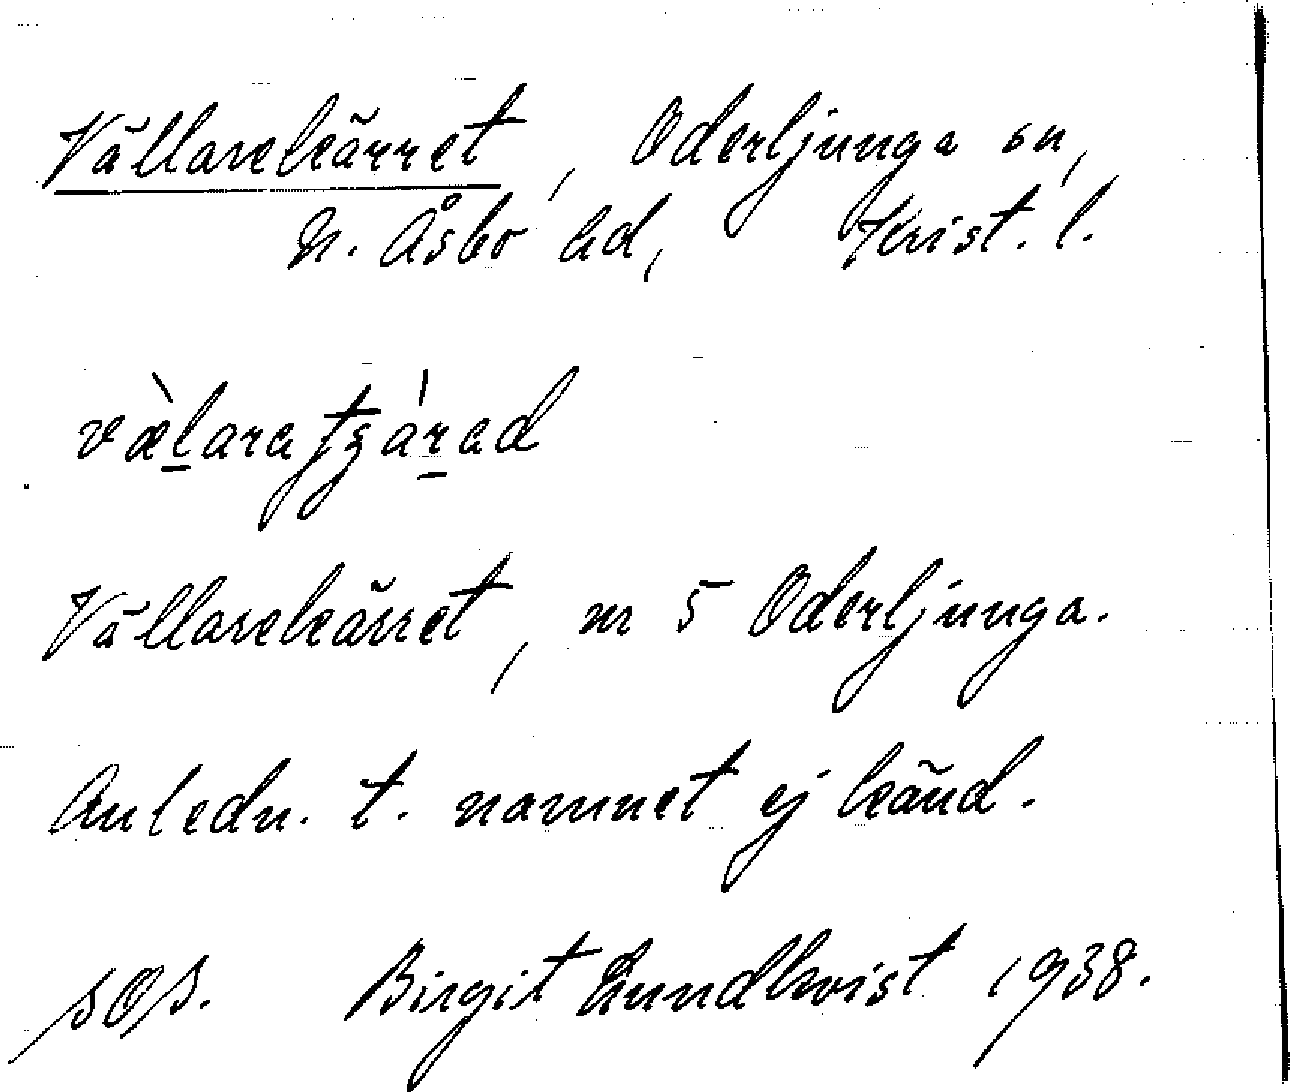 Vällarekärret, Oderljunga sn,
N. Åsbo hd, Krist. l.
Vällarekärret, nr 5 Oderljunga.
Anledn. t. namnet ej känd.
SOS. Birgit Lundkvist 1938.